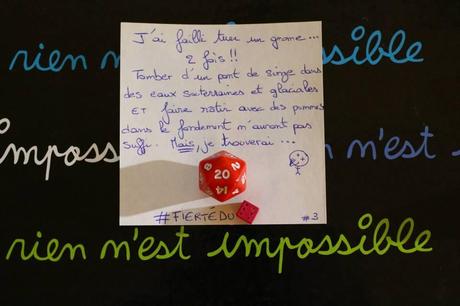 J'ai failli tuer un gnome...
2 fois !!
rien ssible
Tomber d'un pont de singe dans
des eaux souterraines et glaciales
ET faire rotir avec des pommes
dans le fondement n'auront pas
suffi. Mais, je trouverai ...
imposs n'est
20
14
#FIERTÉDU #3
rien n'est impossible